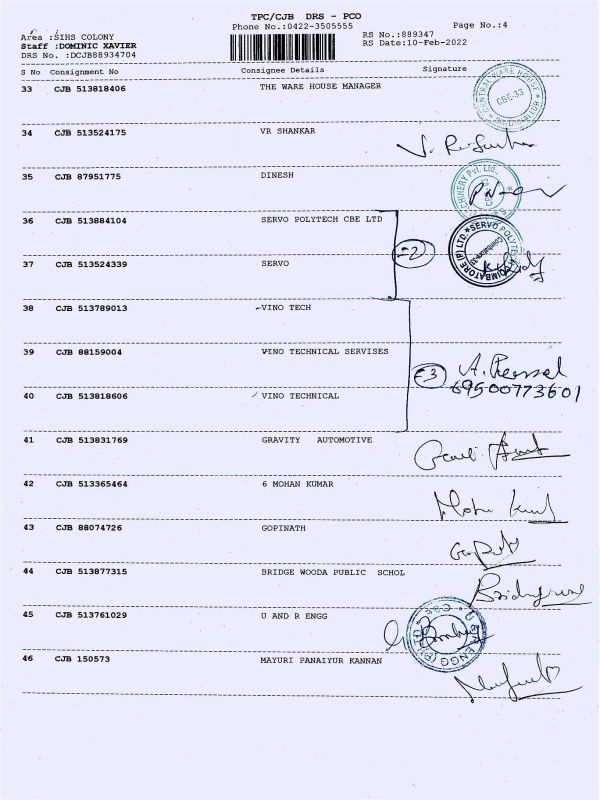 TPC/CJB DRS - PCO
Phone No.:0422-3505555 Page No.:4
Area :SIHS COLONY RS No.:889347
Staff :DOMINIC XAVIER RS Date:10-Feb-2022
DRS No. :DCJB88934704
S No Consignment No Consignee Details Signature
33 CJB 513818406 THE WARE HOUSE MANAGER
CENTRAL WARE HOUSE
CBE-33
34 CJB 513524175 VR SHANKAR
35 CJB 87951775 DINESH
36 CJB 513884104 SERVO POLYTECH CBE LTD
37 CJB 513524339 SERVO
=2
38 CJB 513789013 VINO TECH
39 CJB 88159004 VINO TECHNICAL SERVISES
=3
69500773601
40 CJB 513818606 VINO TECHNICAL
41 CJB 513831769 GRAVITY AUTOMOTIVE
42 CJB 513365464 6 MOHAN KUMAR
43 CJB 88074726 GOPINATH
44 CJB 513877315 BRIDGE WOODA PUBLIC SCHOL
45 CJB 513761029 U AND R ENGG
46 CJB 150573 MAYURI PANAIYUR KANNAN